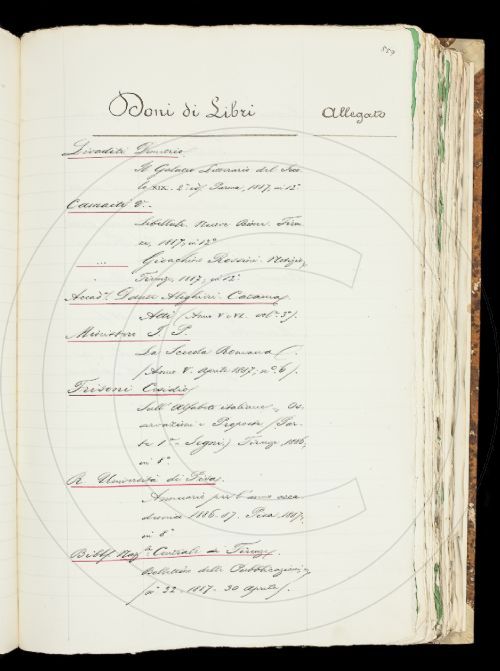 859
Doni di Libri
Allegato
Livaditi Demetrio
Il Galateo Letterario del Seco
lo XIX. 2ª ed. Parma, 1887, in 12º
Camaiti V.
Libellule. Nuove Rime. Firen
ze, 1887, in 12º
... Gioachino Rossini. Notizie,
Firenze, 1887, in 12º
Accadª. Dante Alighieri. Catania
Atti (Anno V e VI. vol.º 3º).
Ministero I. P.
La Scuola Romana
(Anno V. Aprile 1887, nº. 6).
Trisoni Ovidio
Sull' Alfabeto italiano. Os
servazioni e Proposte (Par
te 1ª - Segni) Firenze, 1886,
in 8º
R. Università di Pisa.
Annuario per l'anno acca
demico 1886-87. Pisa, 1887,
in 8º
Bibl. Nazª Centrale di Firenze
Bollettino delle Pubblicazioni,
(nº 32 - 1887 - 30 Aprile).